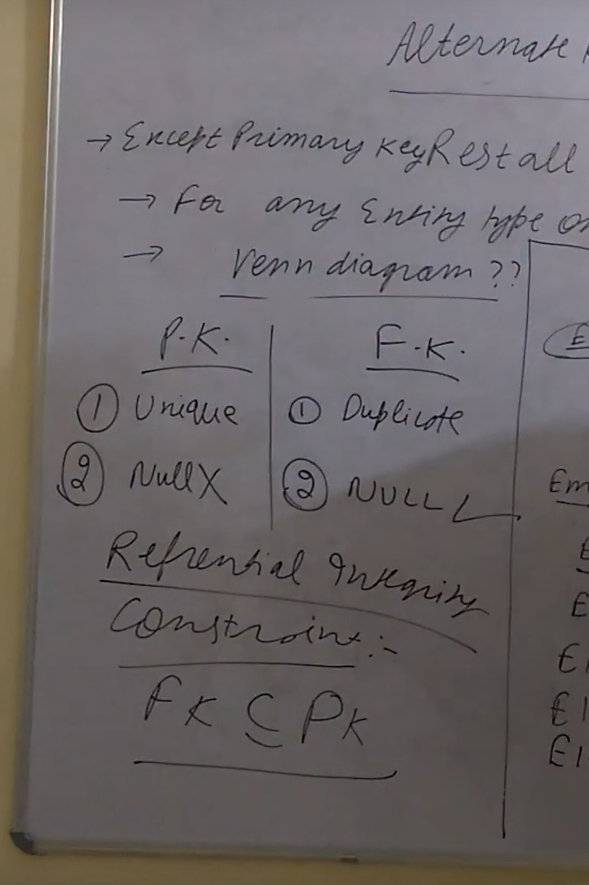 Alternate
→ Except Primary Key Rest all
→ For any Entity type
→ Venn diagram ??
P.K.
① Unique
② Null X
F.K.
① Duplicate
② NULL ✓
Refrential Integrity
Constraint :-
FK ⊆ PK
E
Em
E
E
E1
E1
E1